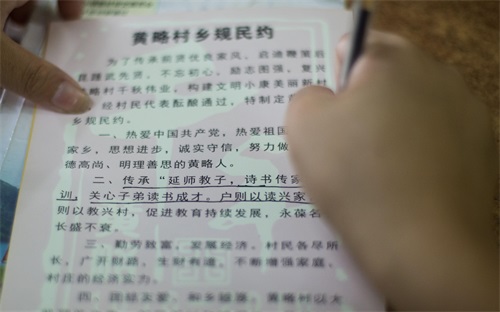 黄略村乡规民约
为了传承前贤优良家风，启迪鞭策后
昆踵武先贤，不忘初心，励志图强，复兴
黄略村千秋伟业，构建文明小康美丽新村
经村民代表酝酿通过，特制定
乡规民约。
一、热爱中国共产党，热爱祖国
家乡，思想进步，诚实守信，努力做
德高尚、明理善思的黄略人。
二、传承“延师教子，诗书传家
训，关心子弟读书成才。户则以读兴家
则以教兴村，促进教育持续发展，永葆名
长盛不衰。
三、勤劳致富，发展经济。村民各尽所
长，广开财路，生财有道，不断增强家庭、
村庄的经济实力。
四、团结友爱，和乡睦邻。黄略村以人